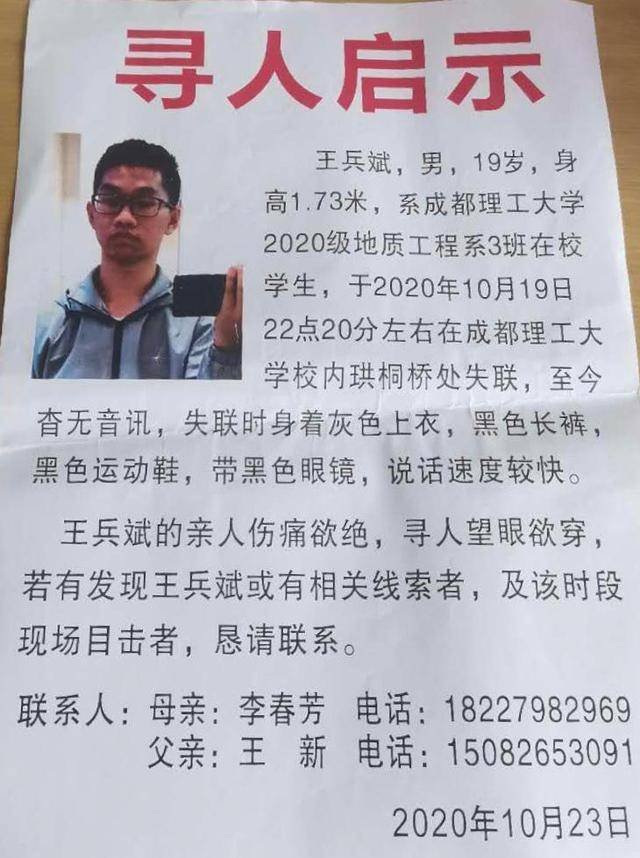 寻人启示
王兵斌，男，19岁，身
高1.73米，系成都理工大学
2020级地质工程系3班在校
学生，于2020年10月19日
22点20分左右在成都理工大
学校内珙桐桥处失联，至今
杳无音讯，失联时身着灰色上衣，黑色长裤，
黑色运动鞋，带黑色眼镜，说话速度较快。
王兵斌的亲人伤痛欲绝，寻人望眼欲穿，
若有发现王兵斌或有相关线索者，及该时段
现场目击者，恳请联系。
联系人：母亲：李春芳 电话：18227982969
父亲：王 新 电话：15082653091
2020年10月23日